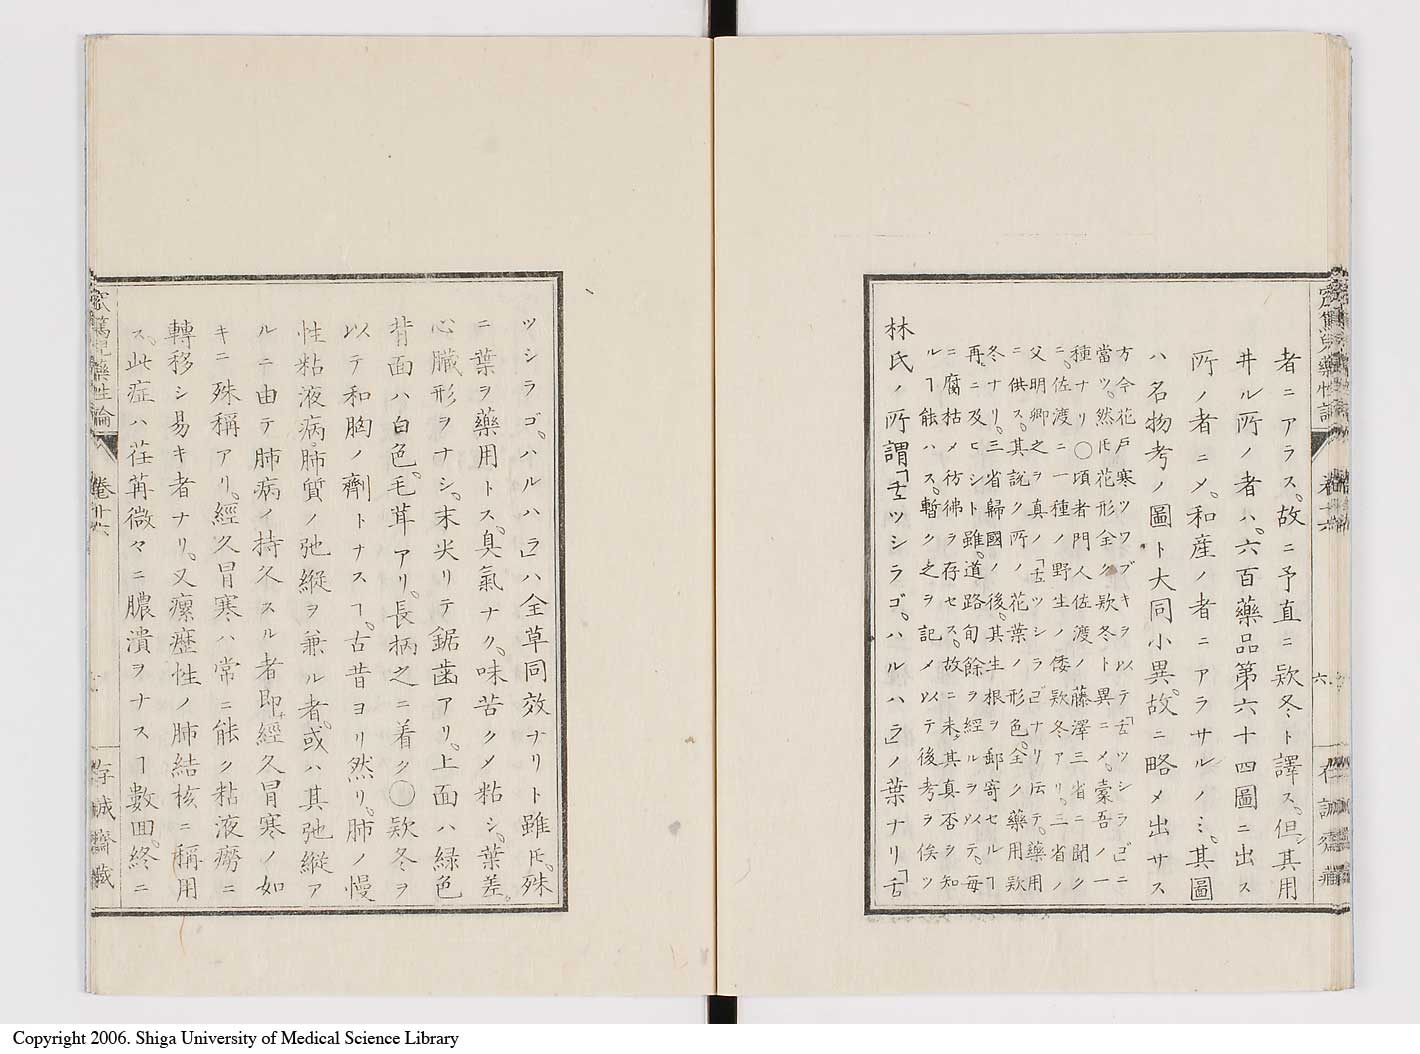 者ニアラス。故ニ予直ニ欵冬ト譯ス。但シ其用
井ル所ノ者ハ。六百藥品第六十四圖ニ出ス
所ノ者ニメ。和産ノ者ニアラサルノミ。其圖
ハ名物考ノ圖ト大同小異。故ニ略メ出サス
方今花戸寒ツワブキヲ以テ「𠮷ツシラゴ」ニ
當ツ。然𪜈花形全ク欵冬ト異ニメ。橐吾ノ一
種ナリ〇頃者門人佐渡ノ藤澤三省ニ聞ク
ニ。佐渡ニ一種ノ野生ノ倭欵冬アリ。三省ノ
父明卿之ヲ真ノ「𠮷ツシラゴ」ナリ伝テ。藥用
ニ供ス。其説ク所ノ花葉ノ形色。全ク藥用欵
冬ナリ。三省歸國ノ後。其生根ヲ郵寄セルヿ
再ニ及ヒシト雖。道路旬餘ヲ經ルヲ以テ。毎
ニ腐枯メ彷彿ヲ存セス。故ニ未其真否ヲ知
ルヿ能ハス。暫ク之ヲ記メ以テ後考ヲ俟ツ
林氏ノ所謂「𠮷ツシラゴ。ハルハラ」ノ葉ナリ「𠮷
六
ツシラゴ。ハルハラ」ハ全草同效ナリト雖𪜈。殊
ニ葉ヲ藥用トス。臭氣ナク。味苦クメ粘シ。葉差。
心臓形ヲナシ。末尖リテ鋸歯アリ。上面ハ緑色
背面ハ白色。毛茸アリ。長柄之ニ着ク〇欵冬ヲ
以テ和胸ノ劑トナスヿ。古昔ヨリ然リ。肺ノ慢
性粘液病。肺質ノ弛縦ヲ兼ル者。或ハ其弛縦ア
ルニ由テ肺病イ持久スル者即經久冒寒ノ如
キニ殊稱アリ。經久冒寒ハ常ニ能ク粘液癆ニ
轉移シ易キ者ナリ。又瘰癧性ノ肺結核ニ稱用
ス。此症ハ荏苒微々ニ膿潰ヲナスヿ數回。終ニ
藥性論
巻十六
存誠齋藏
Copyright 2006. Shiga University of Medical Science Library